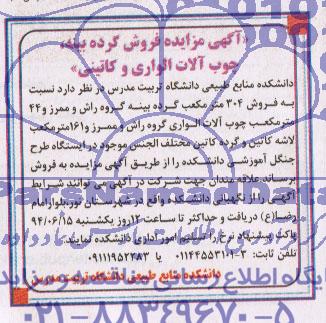 «آگهی مزایده فروش گرده بینه،
چوب آلات الواری و کاتینی»
دانشکده منابع طبیعی دانشگاه تربیت مدرس در نظر دارد نسبت
به فروش ۳۰۴ متر مکعب گرده بینه گروه راش و ممرز و ۴۴
مترمکعب چوب آلات الواری گروه راش و ممرز و ۱۶۱مترمکعب
لاشه کاتین و گرده کاتین مختلف الجنس موجود در ایستگاه طرح
جنگل آموزشی دانشکده را از طریق آگهی مزایده به فروش
برساند.علاقه مندان جهت شرکت در آگهی می توانند شرایط
آگهی را از نگهبانی دانشکده واقع در شهرستان نور،بلوارامام
رضا(ع) دریافت و حداکثر تا ساعت ۱۲روز یکشنبه ۹۴/۰۶/۱۵
پاکت پیشنهاد نرخ را تسلیم امور اداری دانشکده نمایند.
تلفن ثابت: ۳-۰۱۱۴۴۵۵۳۱۰۱ یا ۰۹۱۱۱۹۵۲۲۸۳
دانشکده منابع طبیعی دانشگاه تربیت مدرس
پایگاه اطلاع رسانی
۰۲۱-۸۸۳۴۹۶۷۰-۵